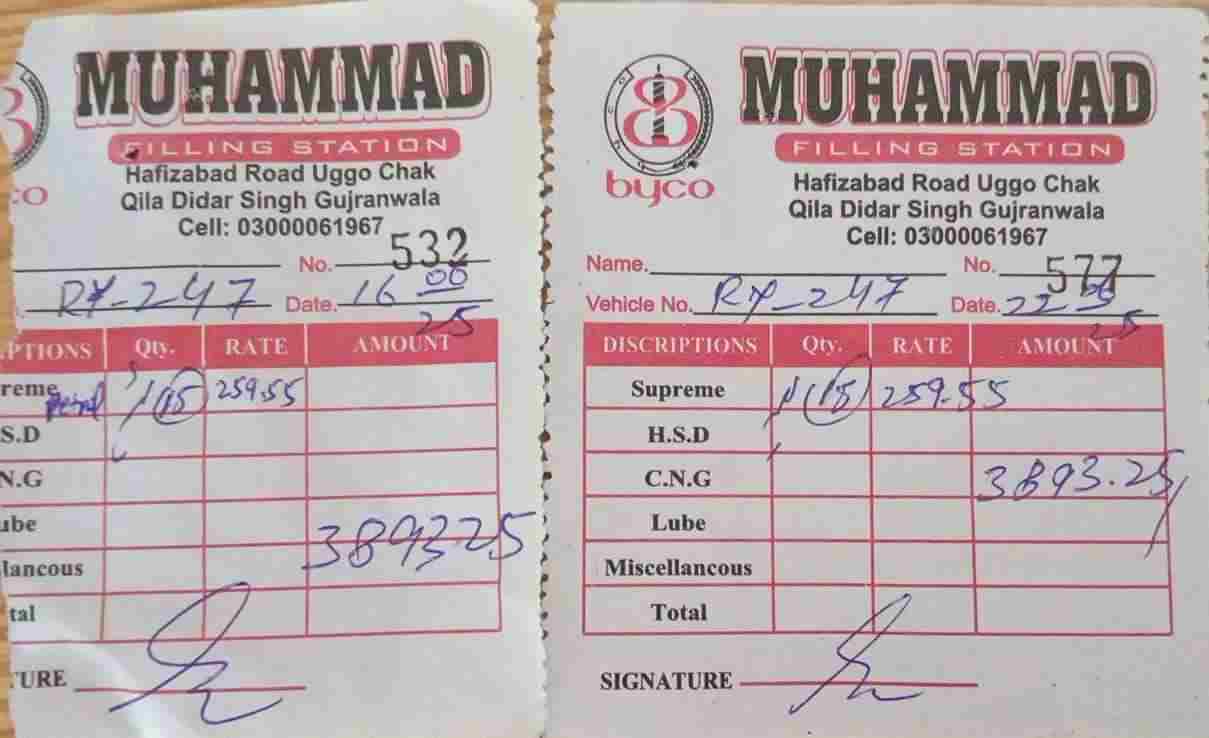 MUHAMMAD
FILLING STATION
Hafizabad Road Uggo Chak
Qila Didar Singh Gujranwala
Cell: 03000061967
:co
No. 532
RY-247 Date. 16 00 25
PTIONS Qty. RATE AMOUNT
reme petrol 15 259.55
S.D
N.G
ube 389325
lancous
tal
TURE
MUHAMMAD
FILLING STATION
byco
Hafizabad Road Uggo Chak
Qila Didar Singh Gujranwala
Cell: 03000061967
Name. No. 577
Vehicle No. RY-247 Date. 22 25
DISCRIPTIONS Qty. RATE AMOUNT
Supreme 15 259.55
H.S.D
C.N.G 3893.25
Lube
Miscellancous
Total
SIGNATURE